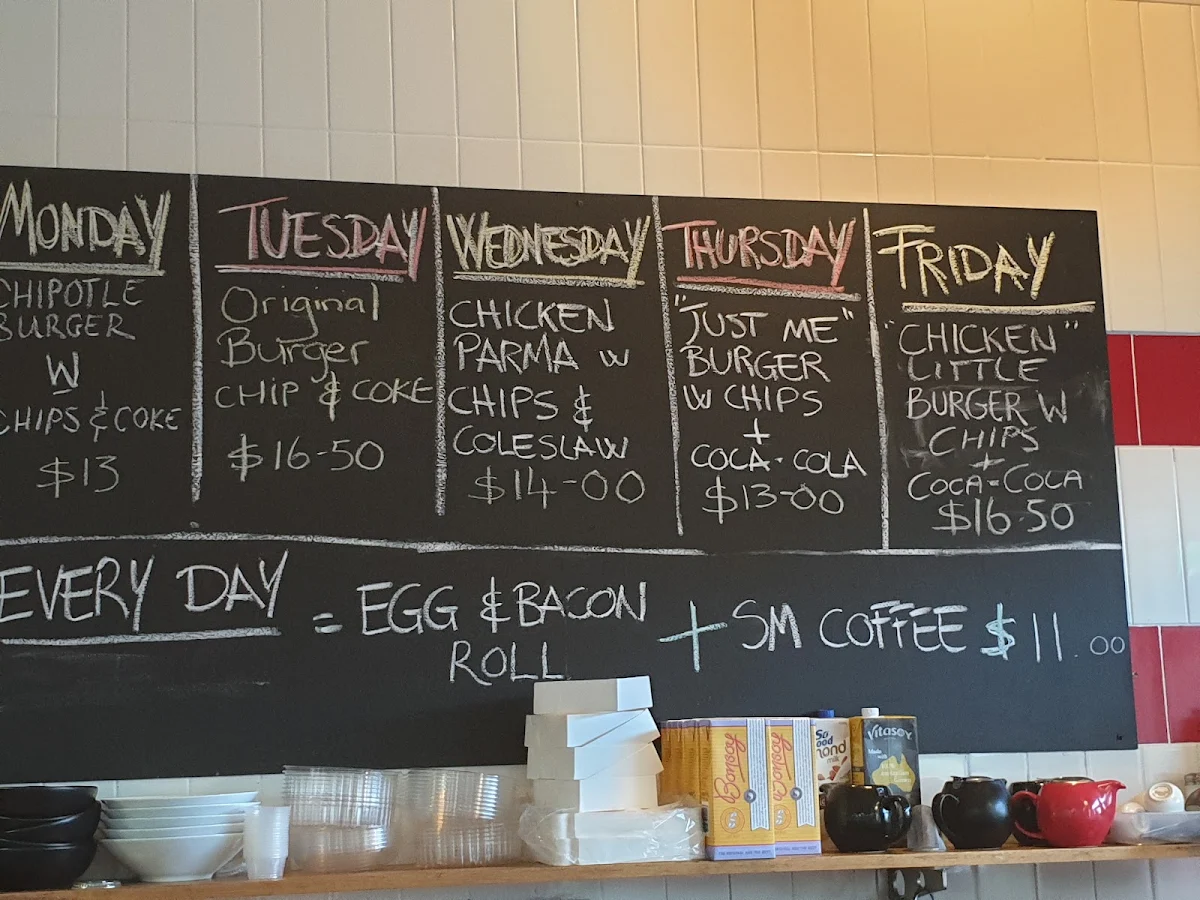 MONDAY
CHIPOTLE
BURGER
W
CHIPS & COKE
$13
TUESDAY
Original
Burger
CHIP & COKE
$16-50
WEDNESDAY
CHICKEN
PARMA W
CHIPS &
COLESLAW
$14-00
THURSDAY
"JUST ME"
BURGER
W CHIPS
+
COCA-COLA
$13-00
FRIDAY
"CHICKEN"
LITTLE
BURGER W
CHIPS
+
COCA-COCA
$16.50
EVERY DAY = EGG & BACON + SM COFFEE $11.00
ROLL
Bonsoy
Bonsoy
So
Good
milk
Vitasoy